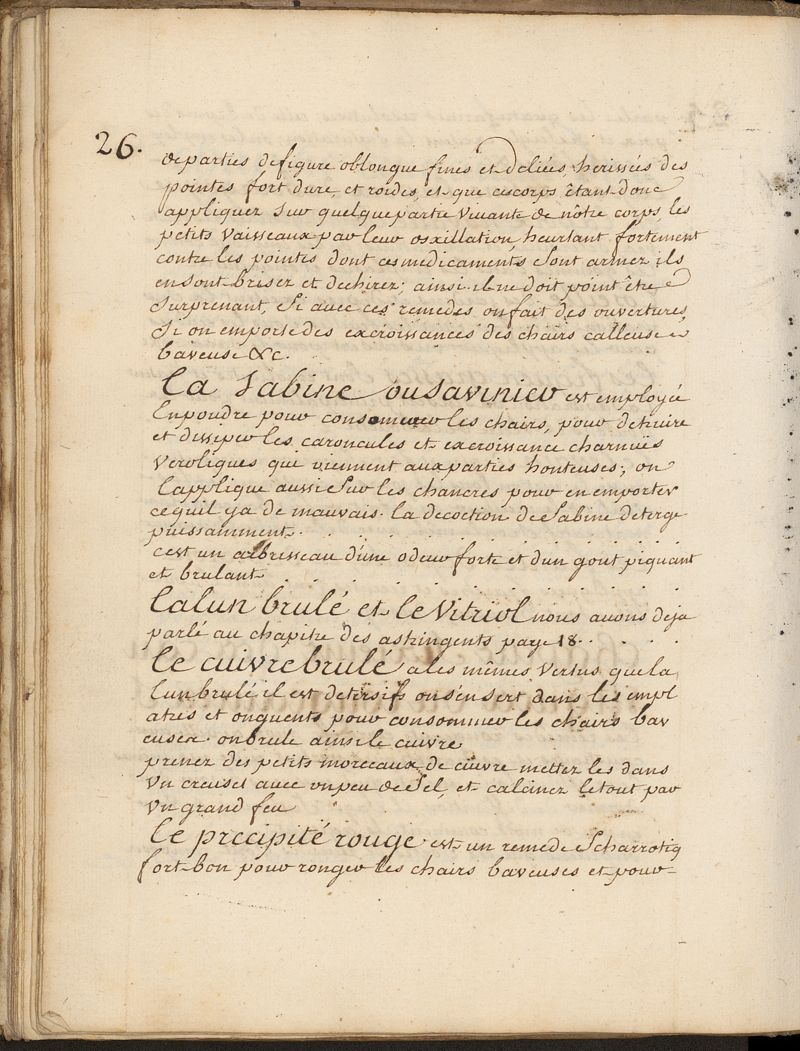 26.
de parties de figure oblongue fines et deliées herissées des
pointes fort dure, et roides, et que ces corps êtant donc
appliquez sur quelque partie vivante de nôtre corps, les
petits vaisseaux par leur osxillation, heurtant fortement
contre les pointes dont ces medicaments sont armez ils
en sont brisez et dechirez; ainsi il ne doit point être
surprenant, si avec ces remedes on fait des ouvertures
si on emporte des excroissances des chairs calleuse
baveuse &c.
La Sabine ou Savinier est employée
En poudre pour consommer les chairs, pour detruire
et dissiper les caroncules et excroissance charnuës
veroliques qui viennent aux parties honteuses; on
l'applique aussi sur les chancres pour en emporter
ce quil y a de mauvais. la decoction de Sabine deterge
puissamment.
c'est un arbrisseau d'une odeur forte et d'un gout piquant
et brulant
Lalun brulé et le Vitriol nous avons deja
parlé au chapitre des astringents page 18.
Le cuivre brulé a les mêmes vertus que la
lun brulé il est detersifs on s'en sert dans les empl
atres et onguents pour consommer les chairs bav
euses. on brule ainsi le cuivre
prenez des petits morceaux de cuivre mettez les dans
un creuset avec un peu de sel, et calcinez le tout par
un grand feu
Le precipité rouge est un remede scharrotiq
fort bon pour ronger les chairs baveuses et pour